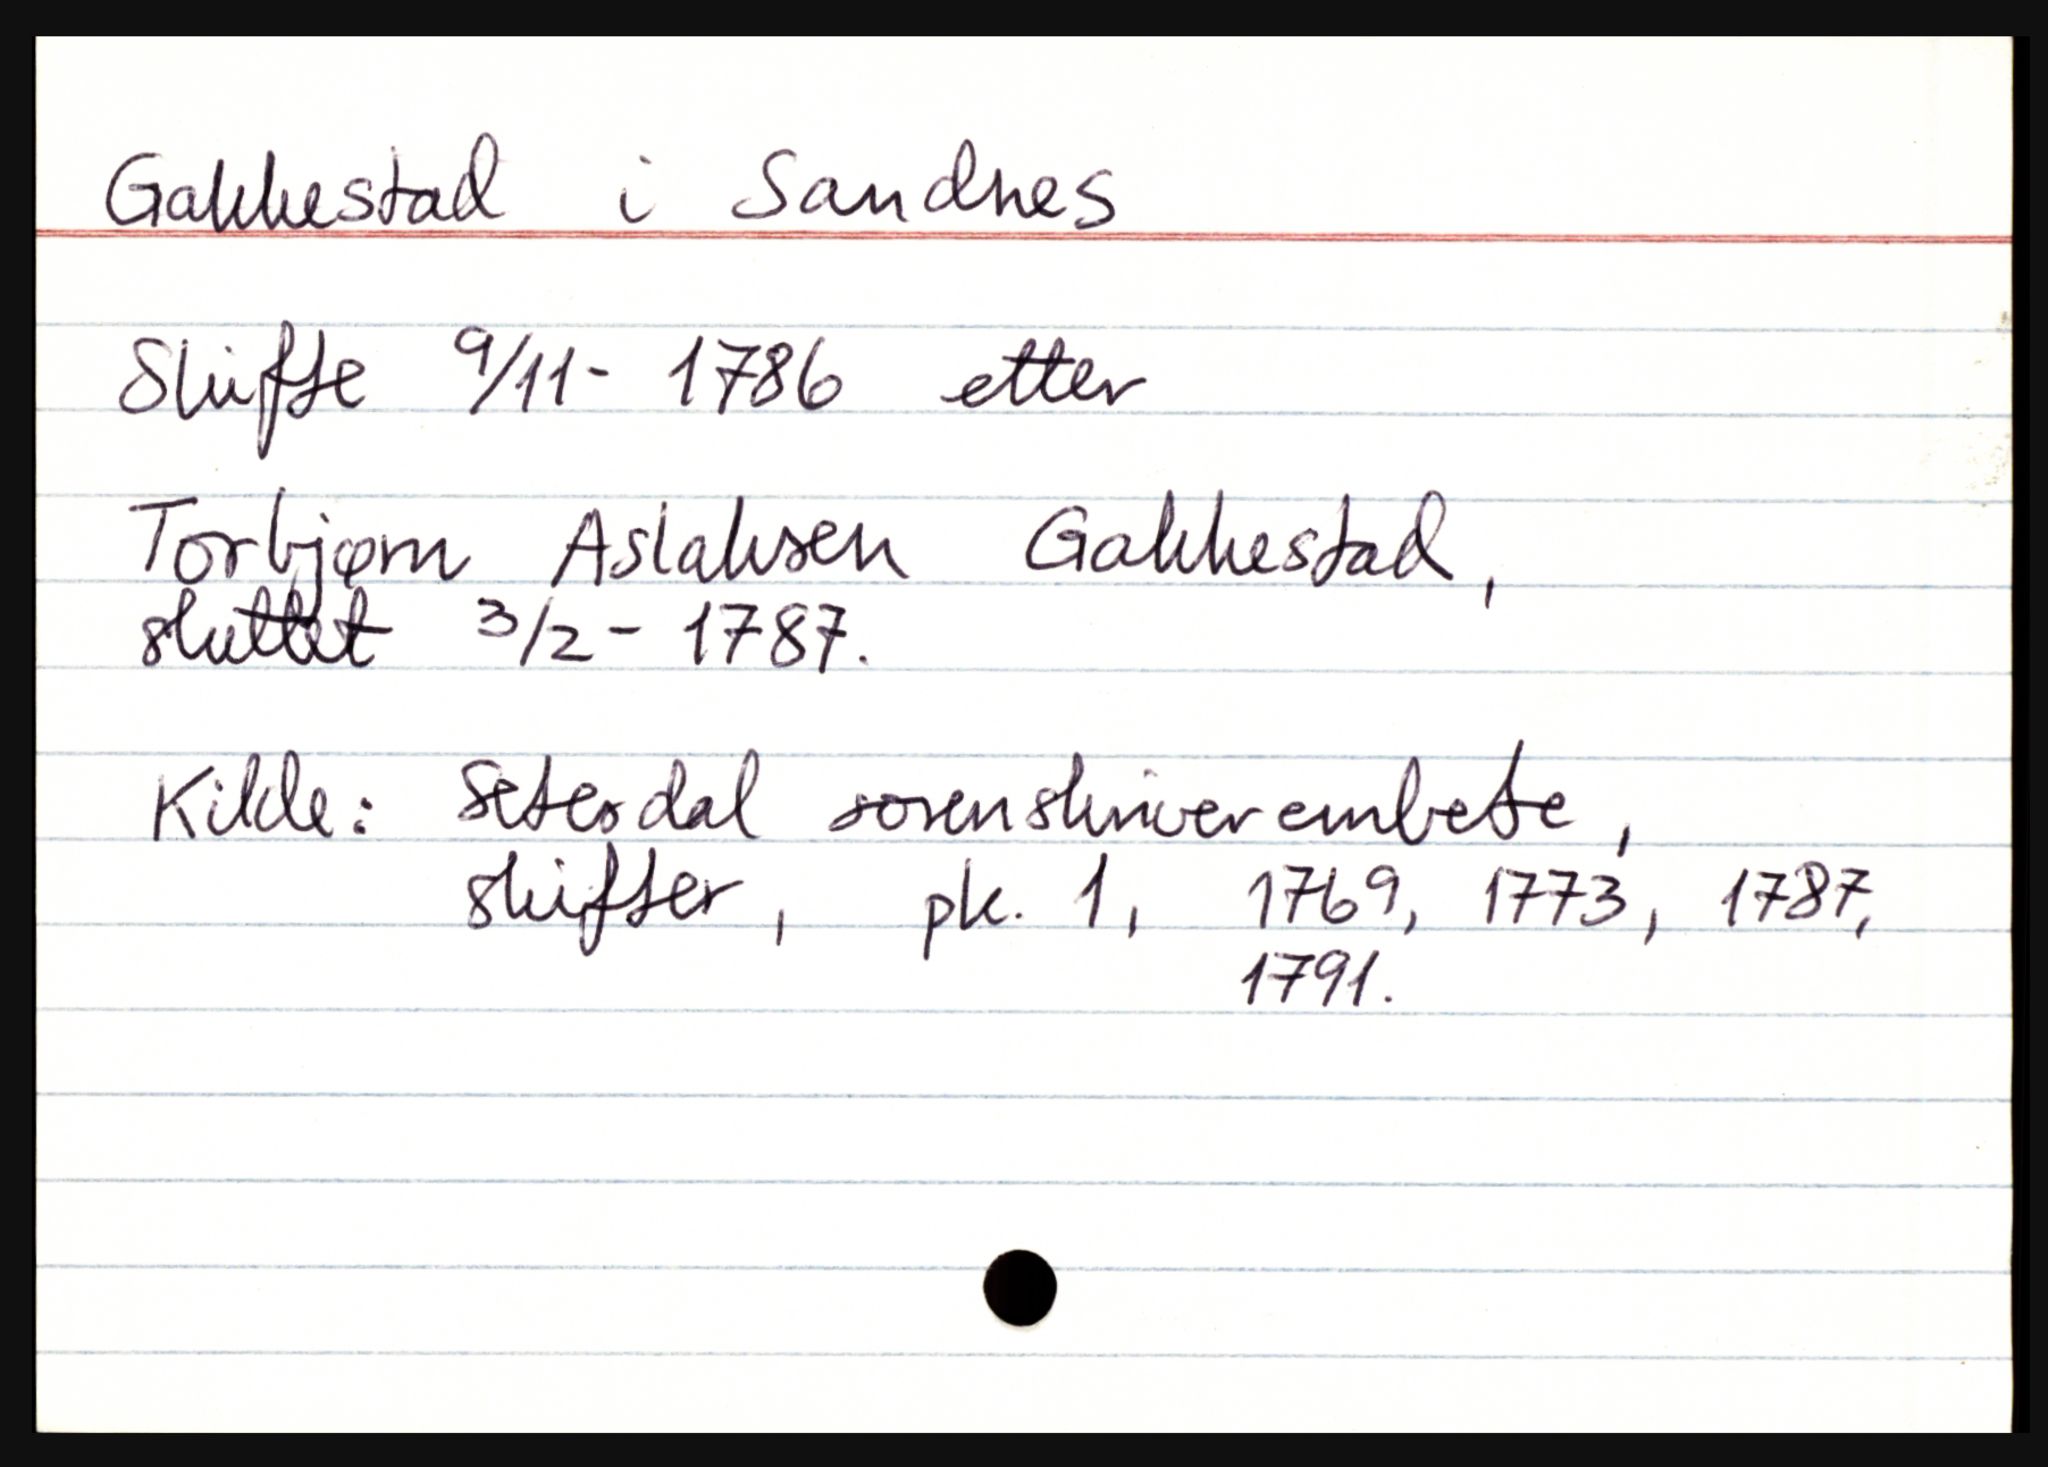 Gakkestad i Sandnes
Skifte 9/11- 1786 etter
Torbjørn Aslaksen Gakkestad,
sluttet 3/2 - 1787.
Kilde: Setesdal sorenskriverembete,
skifter, pk. 1, 1769, 1773, 1787,
1791.